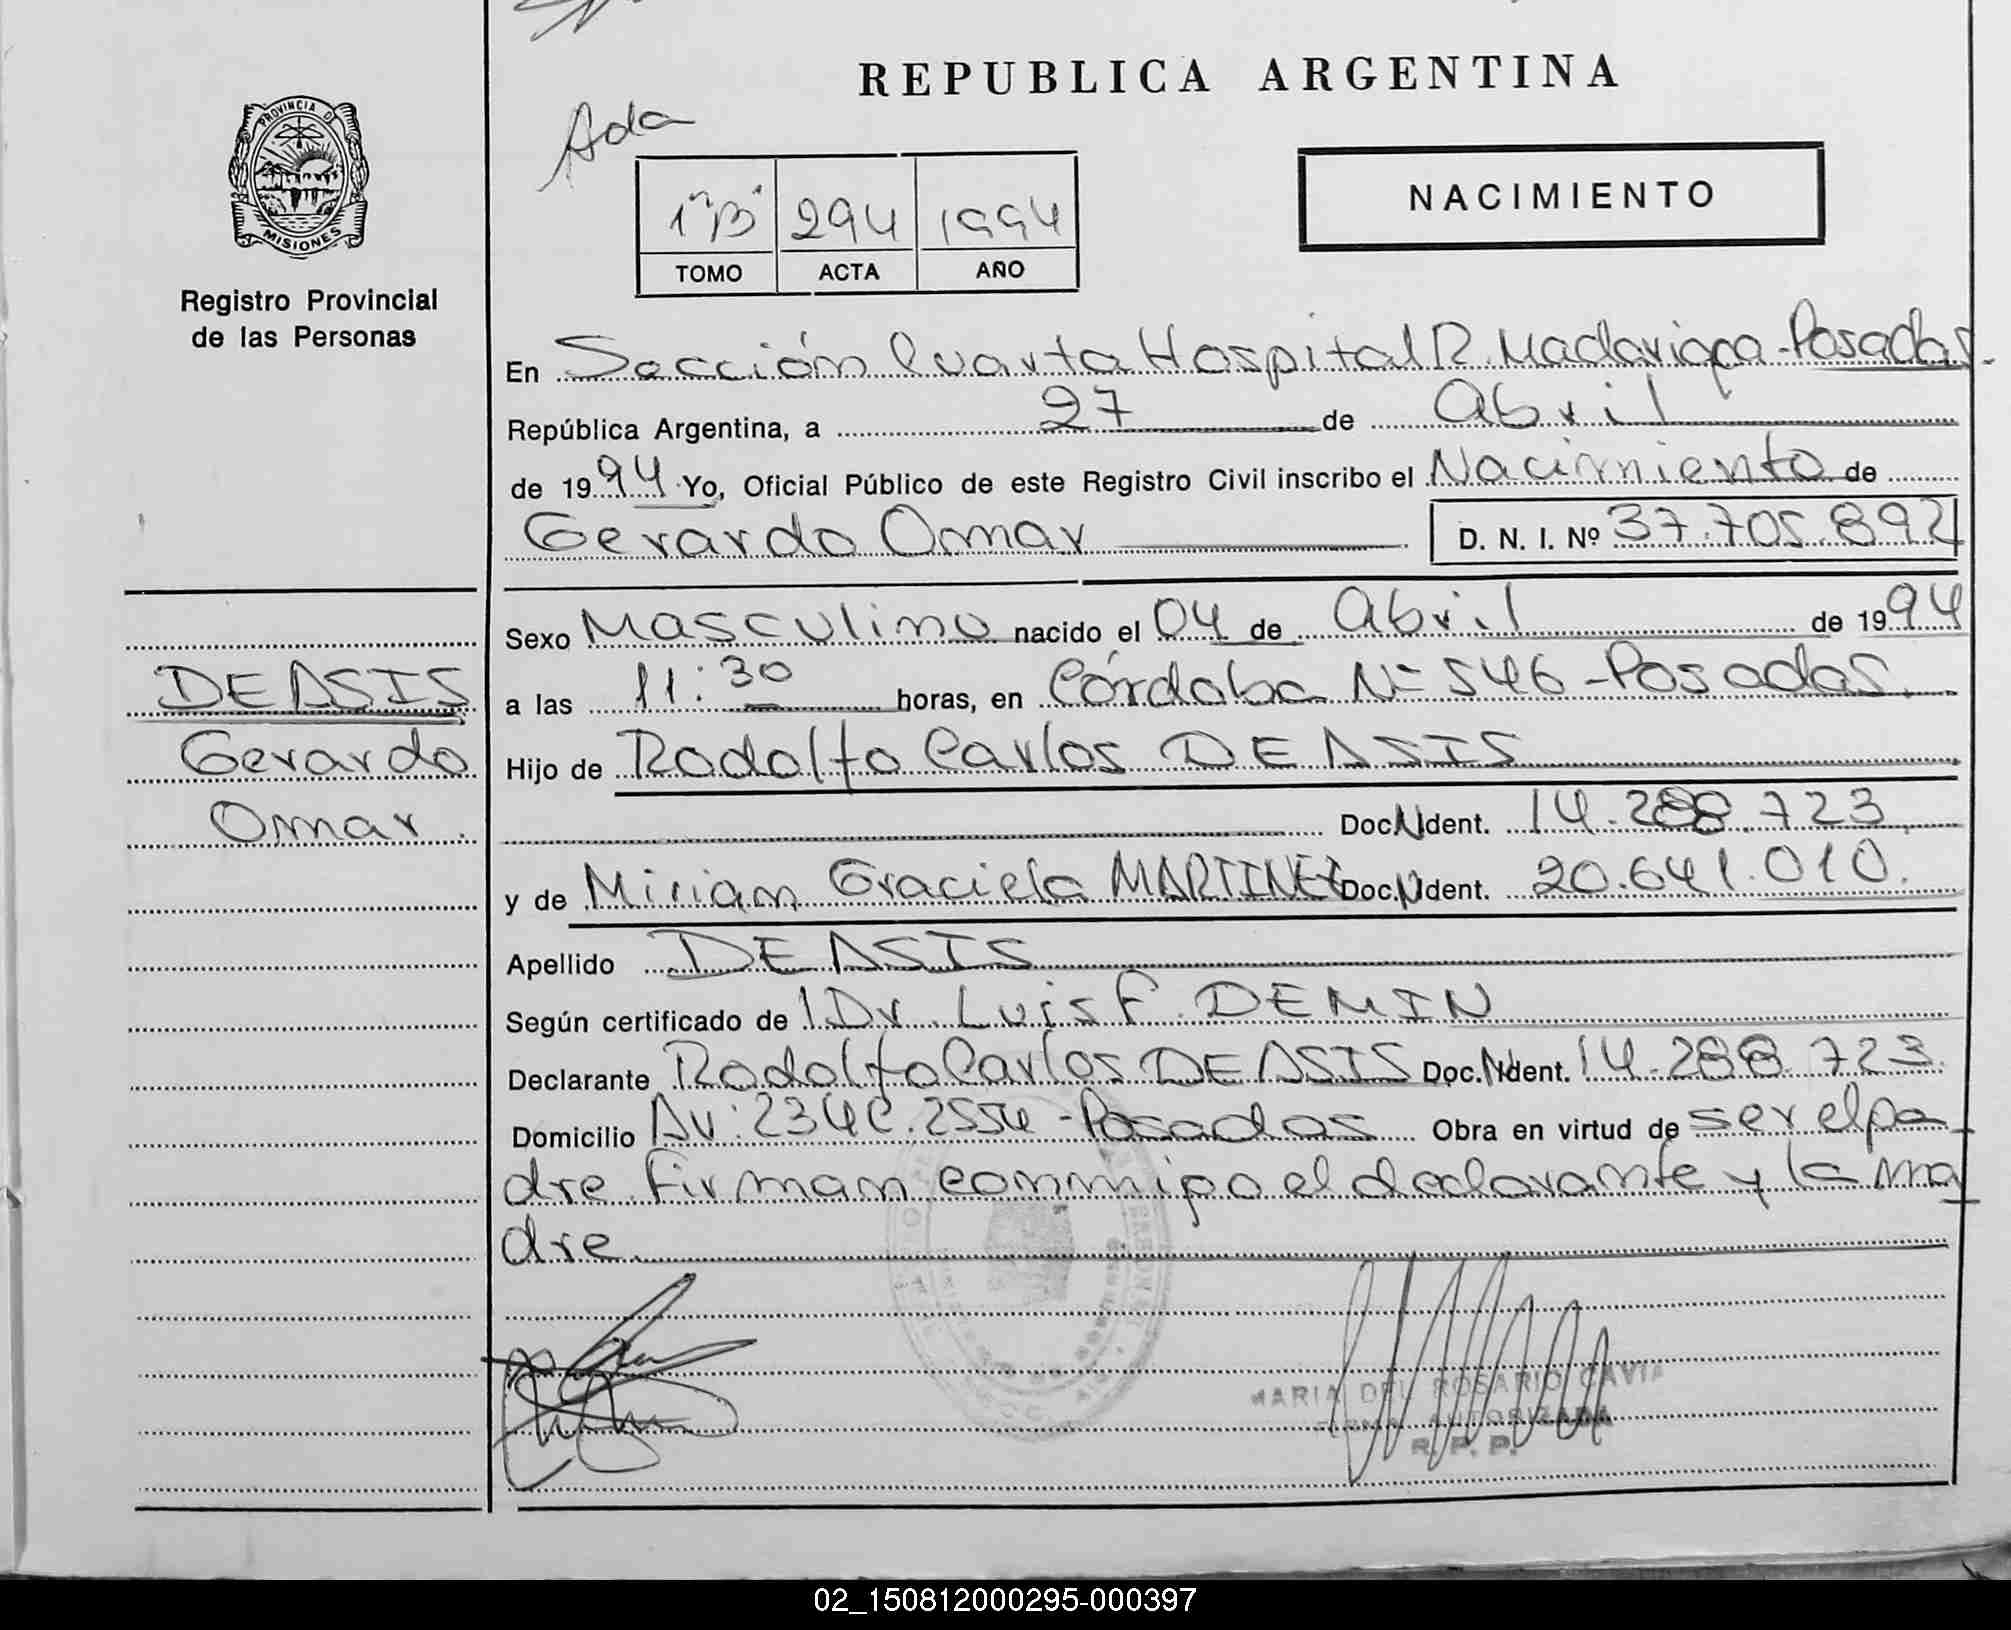 REPUBLICA ARGENTINA
Ada
PROVINCIA DE
MISIONES
Registro Provincial
de las Personas
1º "B" 294 1994
TOMO ACTA AÑO
NACIMIENTO
En Sección Cuarta Hospital R. Madariaga - Posadas.
República Argentina, a 27 de Abril
de 1994 Yo, Oficial Público de este Registro Civil inscribo el Nacimiento de
Gerardo Omar D. N. I. Nº 37.705.892
Sexo Masculino nacido el 04 de Abril de 1994
a las 11:30 horas, en Córdoba Nº 546 - Posadas.
Hijo de Rodolfo Carlos DE ASIS
Doc. N Ident. 14.288.723
y de Miriam Graciela MARTINEZ Doc. N Ident. 20.641.010.
Apellido DE ASIS
Según certificado de l Dr. Luis F. DEMIN
Declarante Rodolfo Carlos DE ASIS Doc. N Ident. 14.288.723.
Domicilio Av: 234 C. 2554 - Posadas Obra en virtud de ser el pa
dre. Firman conmigo el declarante y la ma
dre.
DE ASIS
Gerardo
Omar.
MARIA DEL ROSARIO CAVIA
FIRMA AUTORIZADA
R. P. P.
02_150812000295-000397